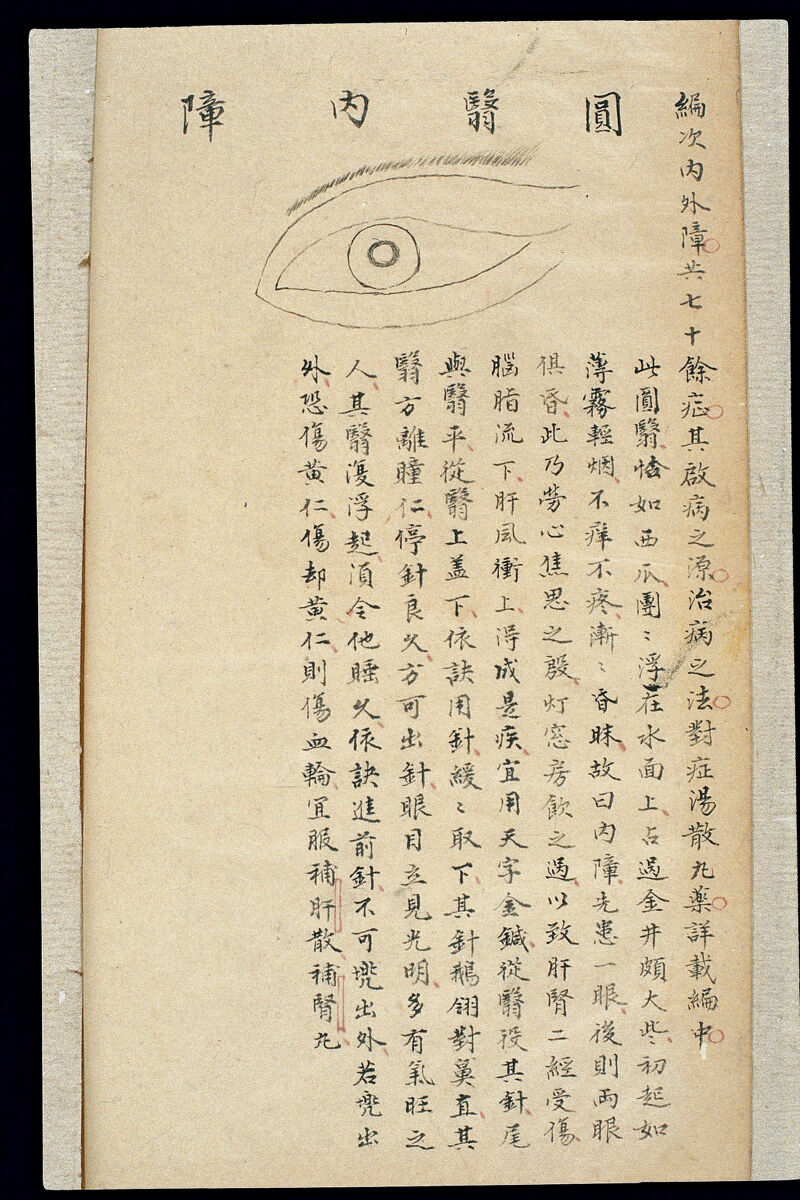 編次内外障共七十餘症其啟病之源治病之法對症湯散丸藥詳載編中
圓翳内障
此圓翳恰如西瓜團〻浮在水面上占過金井頗大些初起如
薄霧輕烟不痒不疼漸〻昏昧故曰内障先患一眼後則両眼
俱昏此乃劳心焦思之殷灯窓房飲之過以致肝腎二經受傷
腦脂流下肝风衝上得成是疾宜用天字金鍼從翳投其針尾
與翳平從翳上盖下依訣用針緩〻取下其針鵝翎對鼻直其
翳方離瞳仁停針良久方可出針眼目立見光明多有氣旺之
人其翳復浮起須令他睡久依訣進前針不可兠出外若兠出
外恐傷黄仁傷却黄仁則傷血輪宜服補肝散補腎丸